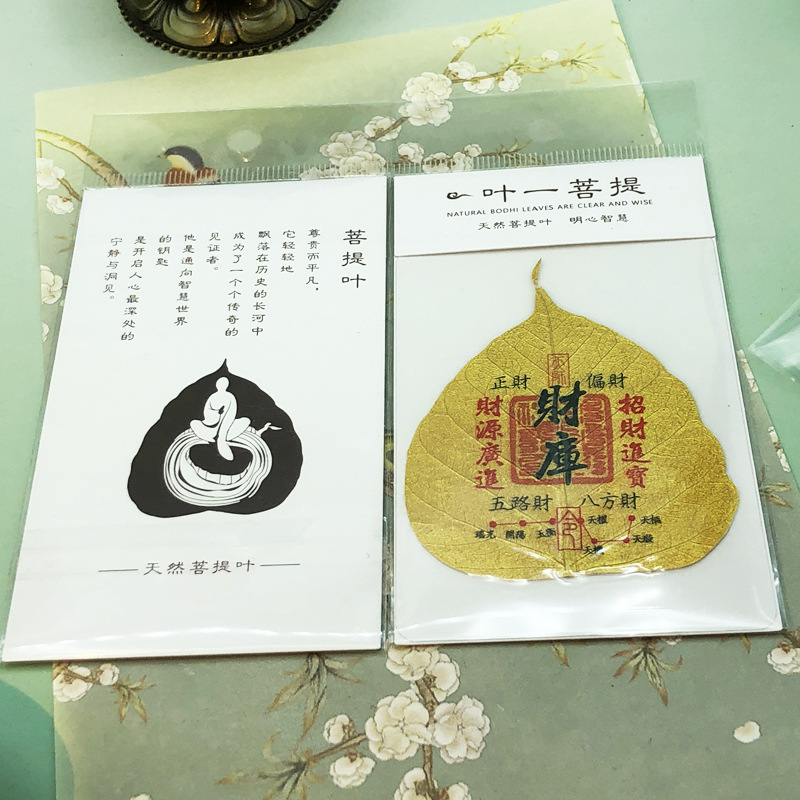 菩提叶
尊贵而平凡，
它轻轻地
飘落在历史的长河中
成为了一个个传奇的
见证者。
他是通向智慧世界
的钥匙
是开启人心最深处的
宁静与洞见。
天然菩提叶
叶一菩提
NATURAL BODHI LEAVES ARE CLEAR AND WISE
天然菩提叶 明心智慧
正財 偏財
財源廣進
財庫
招財進寶
五路財 八方財
令
瑤光 開陽 玉衡 天權 天樞
天璇